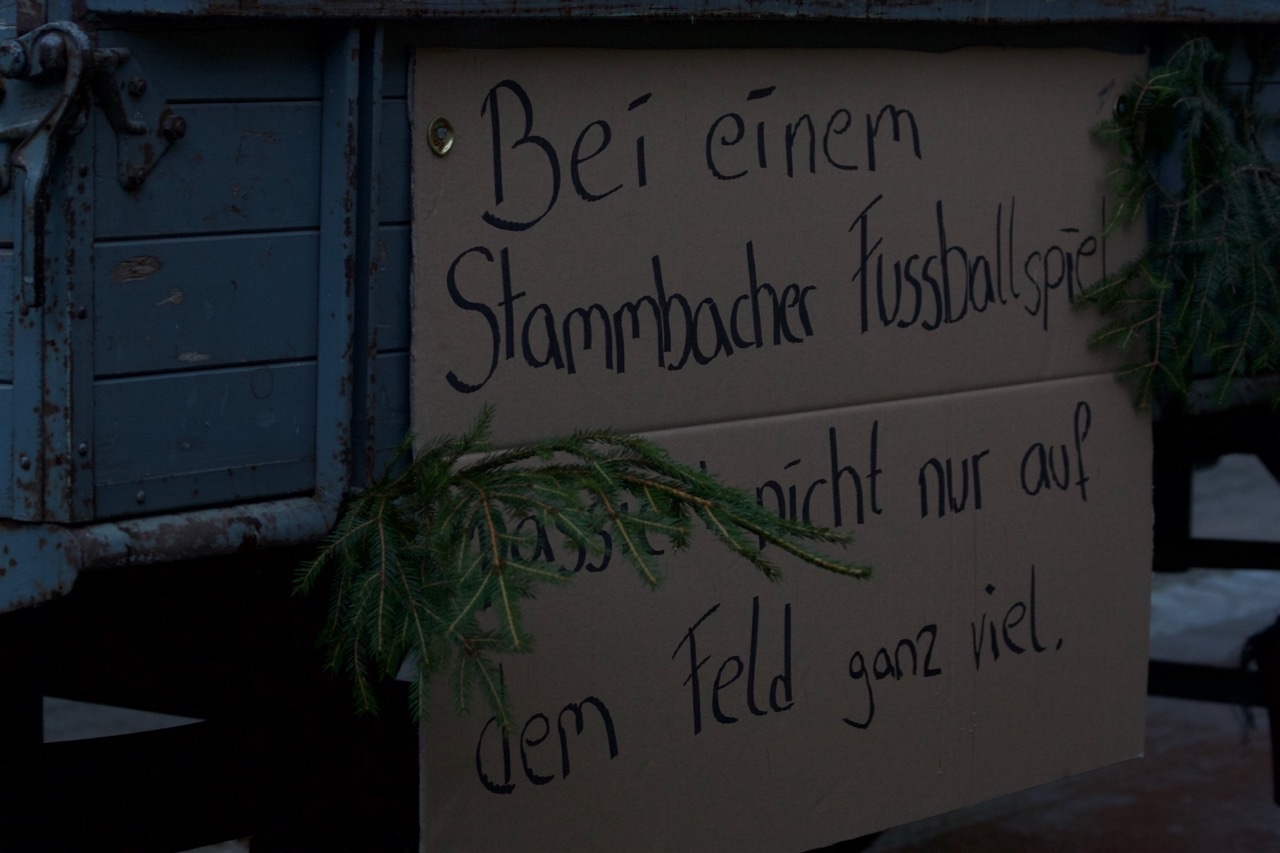 Bei einem
Stammbacher Fussballspiel
passiert nicht nur auf
dem Feld ganz viel.